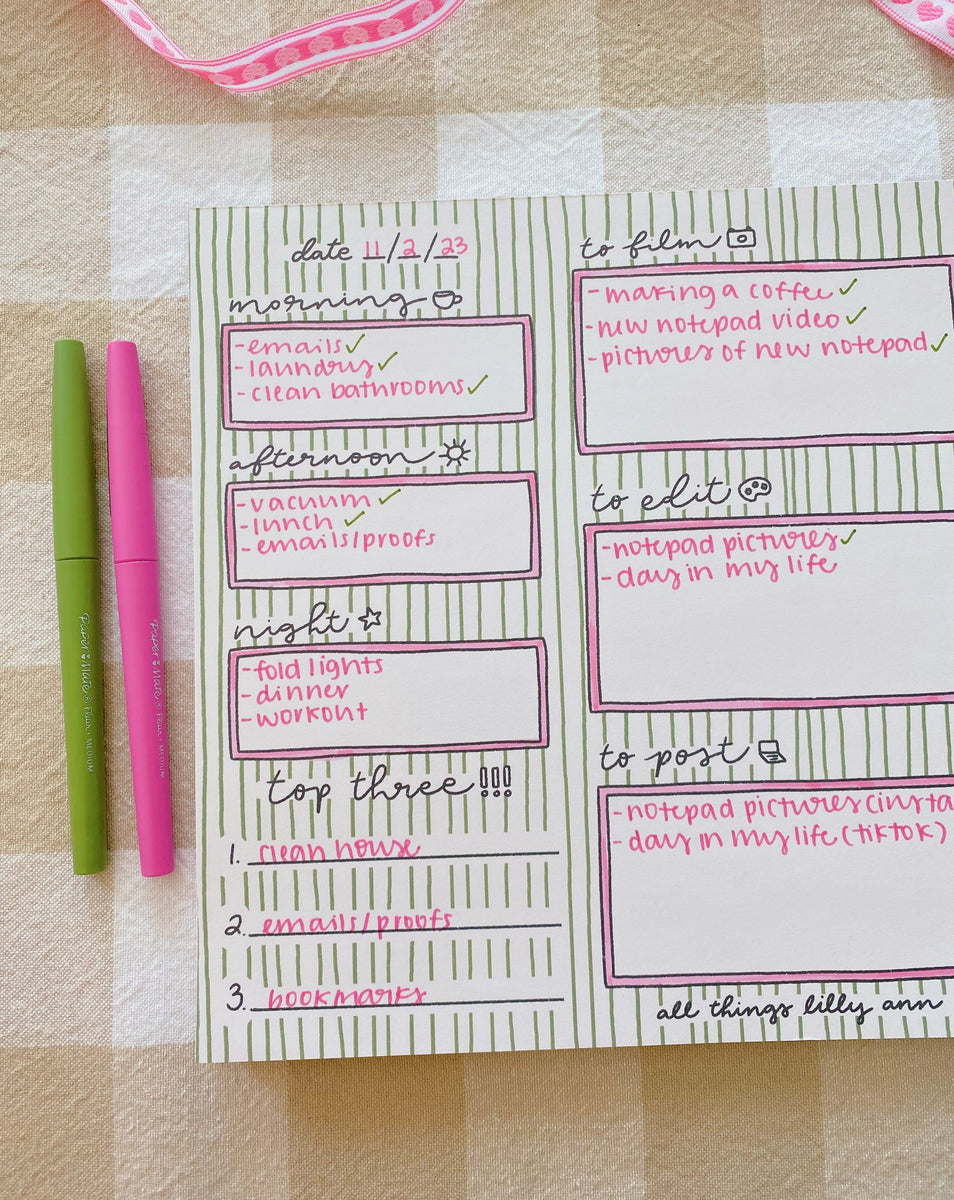 date 11/2/23
morning
-emails✓
-laundry✓
-clean bathrooms✓
afternoon
-vacuum✓
-lunch✓
-emails/proofs
night
-fold lights
-dinner
-workout
top three!!!
1. clean house
2. emails/proofs
3. bookmarks
to film
-making a coffee✓
-new notepad video✓
-pictures of new notepad✓
to edit
-notepad pictures✓
-day in my life
to post
-notepad pictures (insta
-day in my life (tiktok)
all things lilly ann
Paper Mate® Flair. MEDIUM
Paper Mate® Flair. MEDIUM